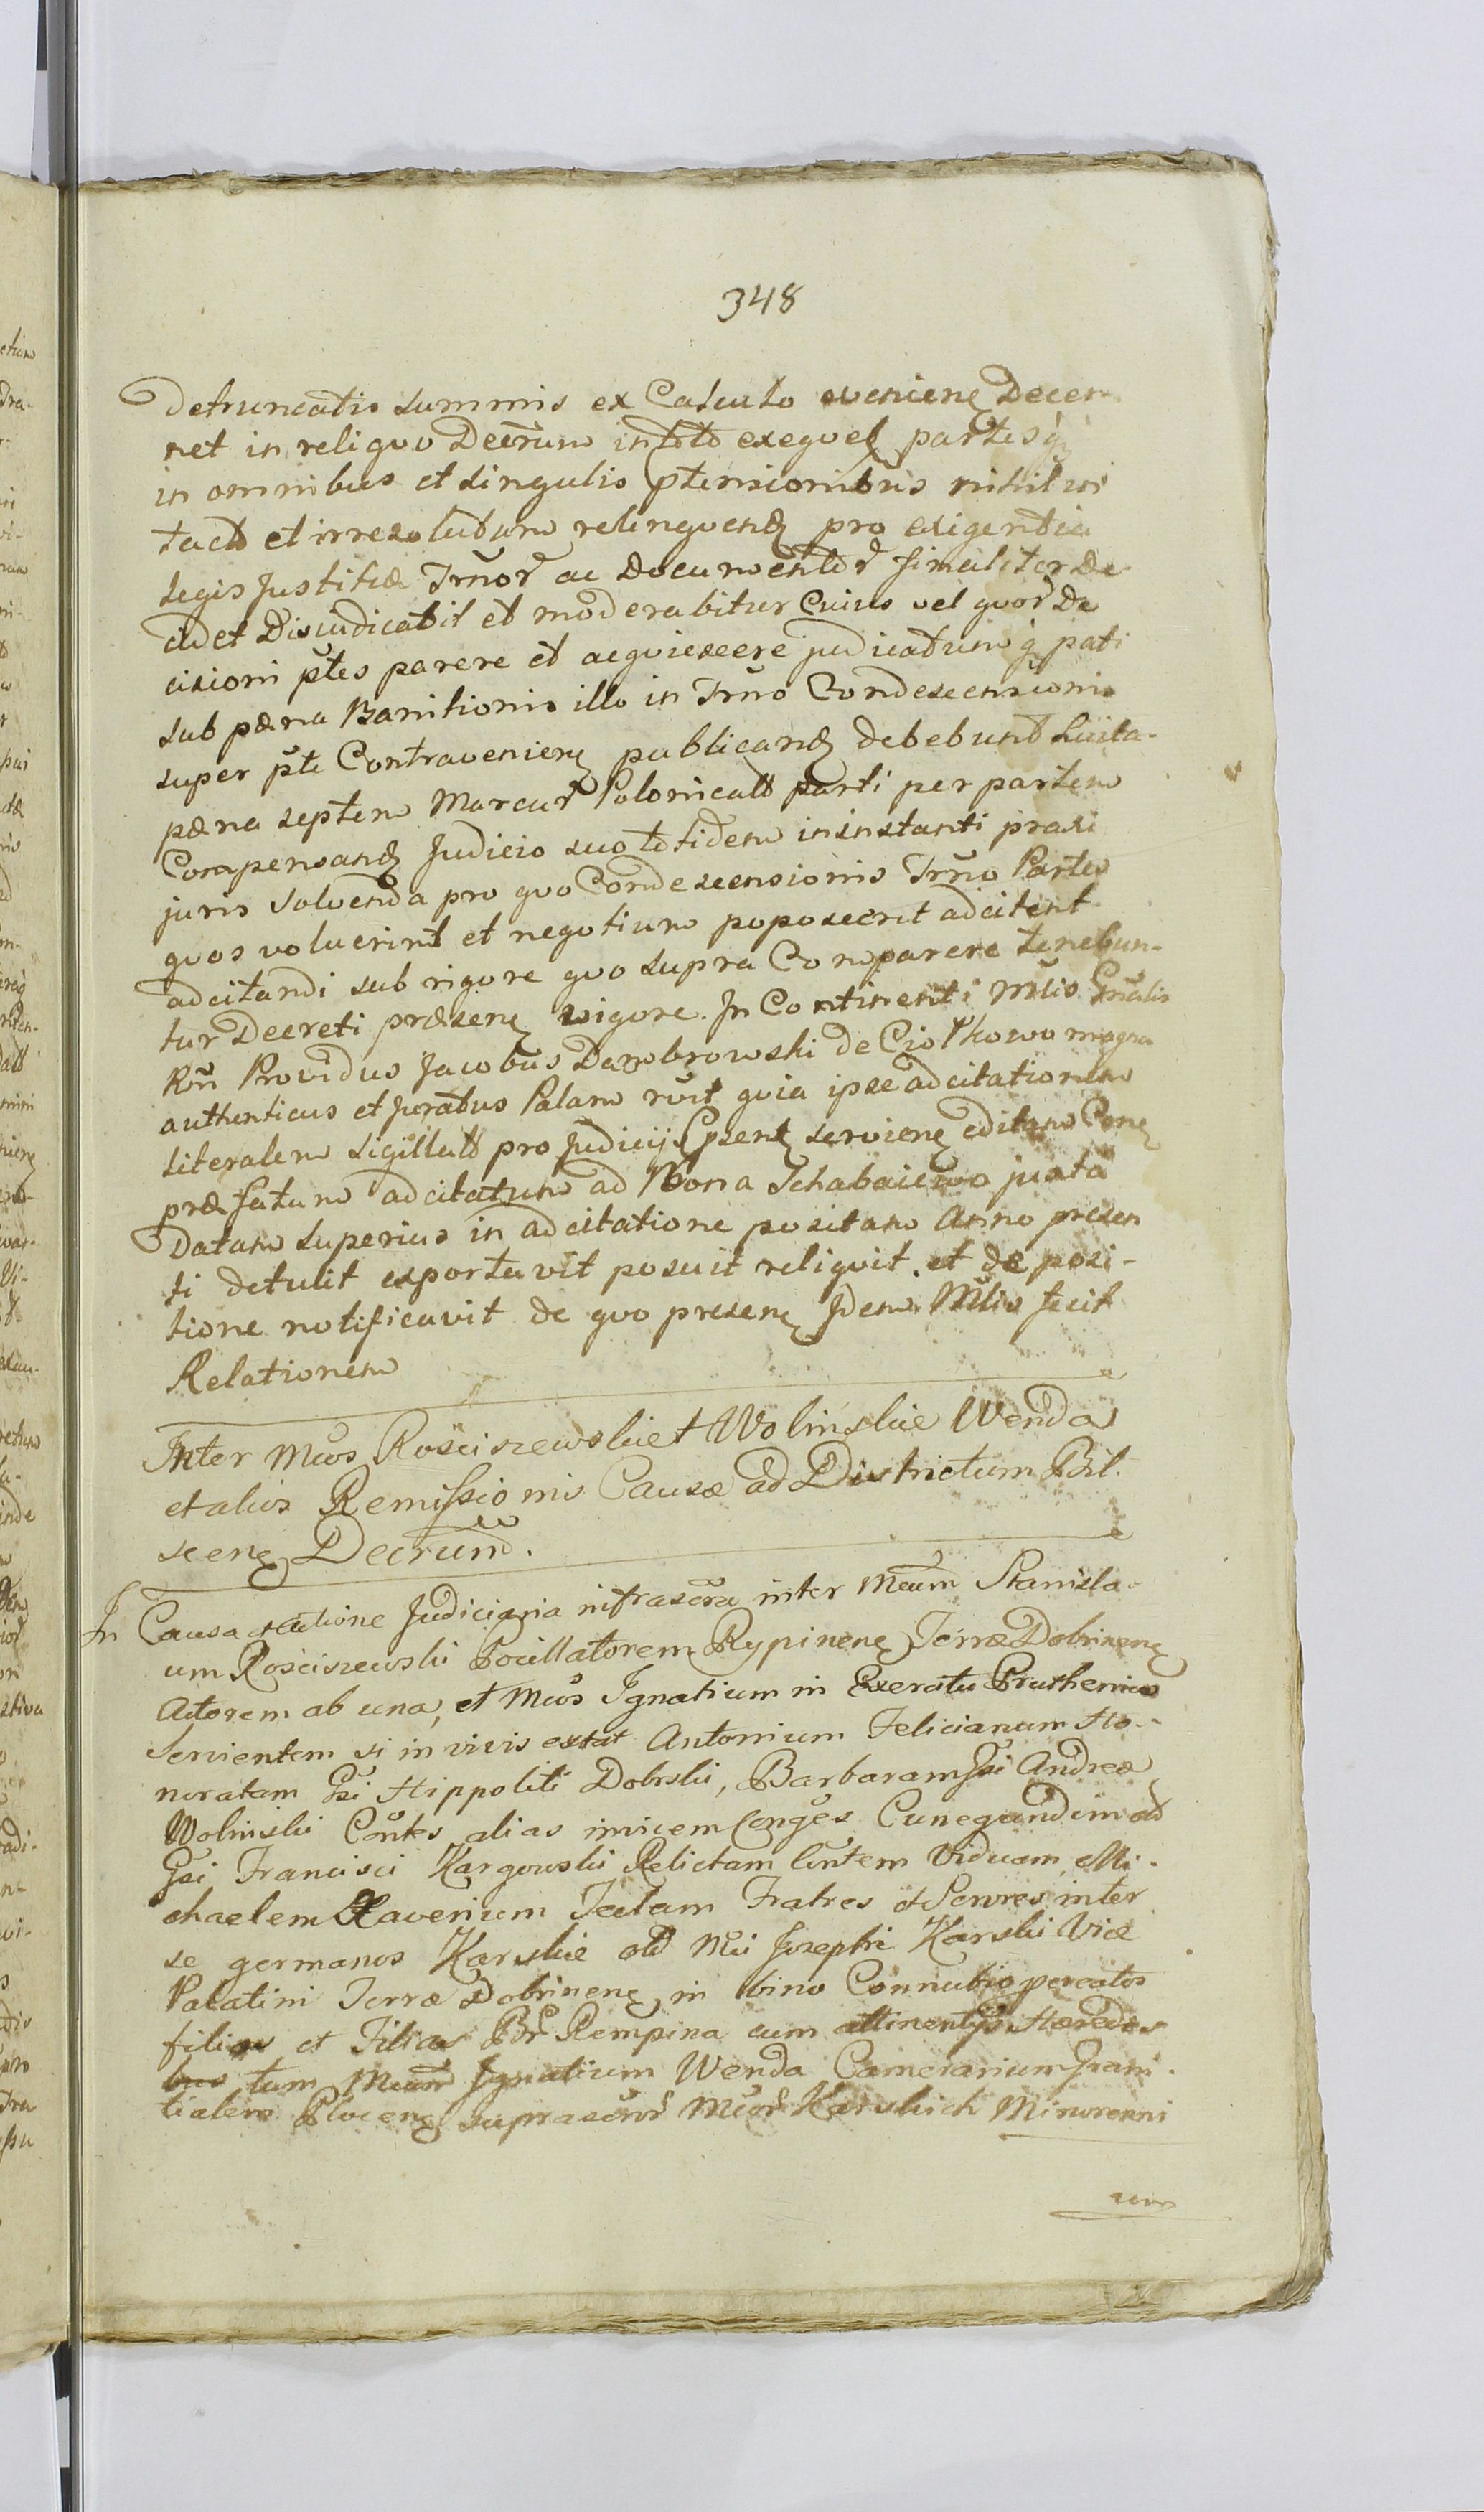 348
Detruncatis summis ex Calculo evenienē Decer-
net in reliquo Decrūm in toto exequeł partesq̨
in omnibus et singulis p̄tensionibus nihil in
tactō et irresolutum relinquenđ pro exigentia
Legis Justitiæ Trnōr̄ ac Documentōr̄ finaliter De
cidet Disiudicabit et moderabitur Cuius vel quor̄ De
cisioni ptēs parere et acquiescere judicatumq̨ pati
sub pæna Banitionis illo in Trnō Condescensionis
super ptē Contravenienē publicanđ debebunt Luita-
pæna septem Marcar̄ Polonicalō parti per partem
Compensanđ Judicio suo totidem in instanti praxi
juris Solvenda pro quo Condescensionis Trnō Partes
quos voluerint et negotium poposcerit adcitent
adcitandi sub rigore quo supra Comparere tenebun-
tur Decreti præsenē vigore. In Continenti Mlis Gnālis
Rn̄ Providus Jacobus Dambrowski de Ciołkowo magna
authenticus et juratus Palam rūt quia ipse adcitationem
literalem sigillatō pro Judicÿs psentē servienē editam Conē
præfatum adcitatum ad Bona Schabaiewo juxta
Datam superius in adcitatione positam Anno presen
ti detulit exportavit posuit reliquit et de posi-
tione notificavit de quo presenē Idem Mlis fecit
Relationem
Inter Mcos Rosciszewskie et Wolinskie Wenda
et alios Remissionis Causæ ad Districtum Bil.
scenē Decrūm.
In Causa et actione Judiciaria infrascra inter Mcum Stanisla-
um Rosciszewski Pocillatorem Rypinenē Terræ Dobrinenē
Actorem ab una, et Mcos Ignatium in Exercitu Pruthenico
Servientem si in vivis extat Antonium Felicianum Ho-
noratam Gsi Hippoliti Dobrski, Barbaram Gsi Andreæ
Wolinski Cōntes alias invicem Conges Cunegundem olđ
Gsi Francisci Kargowski Relictam Cōntem Viduam, Mi-
chaelem Xaverium Teclam Fratres et Sorores inter
se germanos Karskie olđ Mci Josephi Karski Vice
Palatini Terræ Dobrinenē in bino Connubio pcreatos
filios et Filias Br̄ Rempina cum attinentÿs Hæredes
tum Mcum Ignatium Wenda Camerarium Grani-
tialem Plocenē suprascrōr̄ Mcor̄ Karskich Minorenni
um